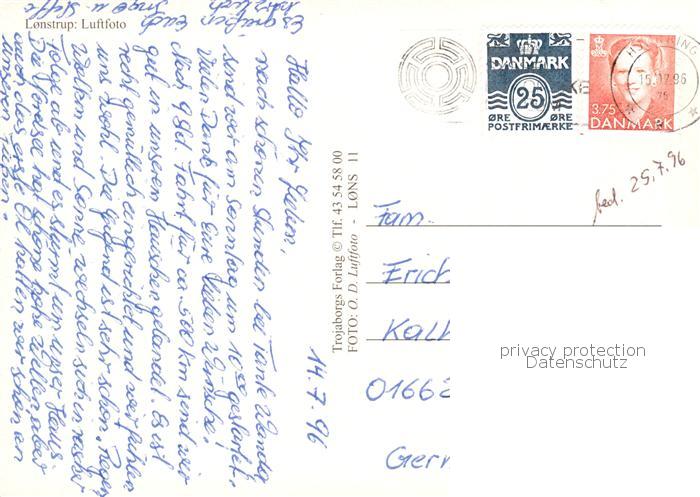 Lønstrup: Luftfoto
14.7.96
Hallo Ihr Lieben,
nach schönen Stunden bei Tante Wanda
sind wir am Sonntag um 10 00 gestartet.
Vielen Dank für Eure lieben Wünsche.
Nach 9 Std. Fahrt für ca. 900 km sind wir
gut in unserem Häuschen gelandet. Es ist
recht gemütlich eingerichtet und wir fühlen
uns wohl. Die Gegend ist sehr schön. Regen,
Wolken und Sonne wechseln sich in rascher
Folge ab und es stürmt um unser Haus.
Die Nordsee hat schöne hohe Wellen aber
auch das erste Öl hatten wir schon an
unseren Füßen.
Es grüßen Euch
herzlich
Trojaborgs Forlag © Tlf. 43 54 58 00
FOTO: O. D. Luftfoto - LØNS 11
DANMARK
25
ØRE ØRE
POSTFRIMÆRKE
3.75
DANMARK
15.07.96
25.7.96
Fam.
Erich
Kall
01662
Germ
privacy protection
Datenschutz